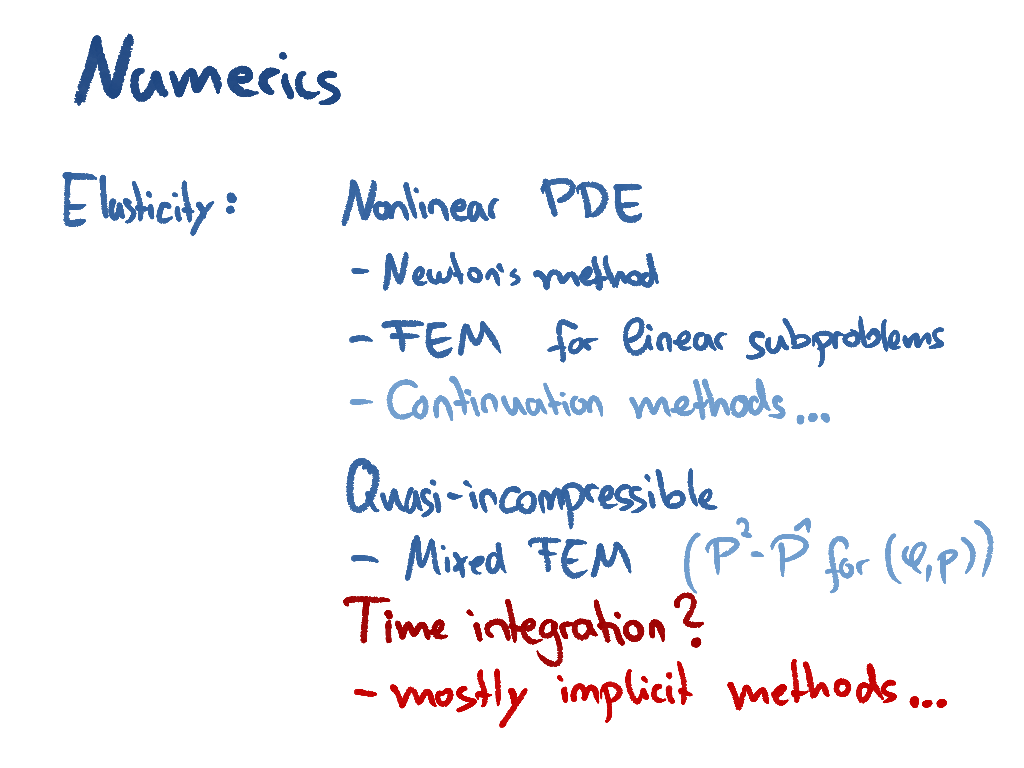 Numerics
Elasticity: Nonlinear PDE
- Newton's method
- FEM for linear subproblems
- Continuation methods...
Quasi-incompressible
- Mixed FEM (P²-P¹ for (φ,p))
Time integration?
- mostly implicit methods...